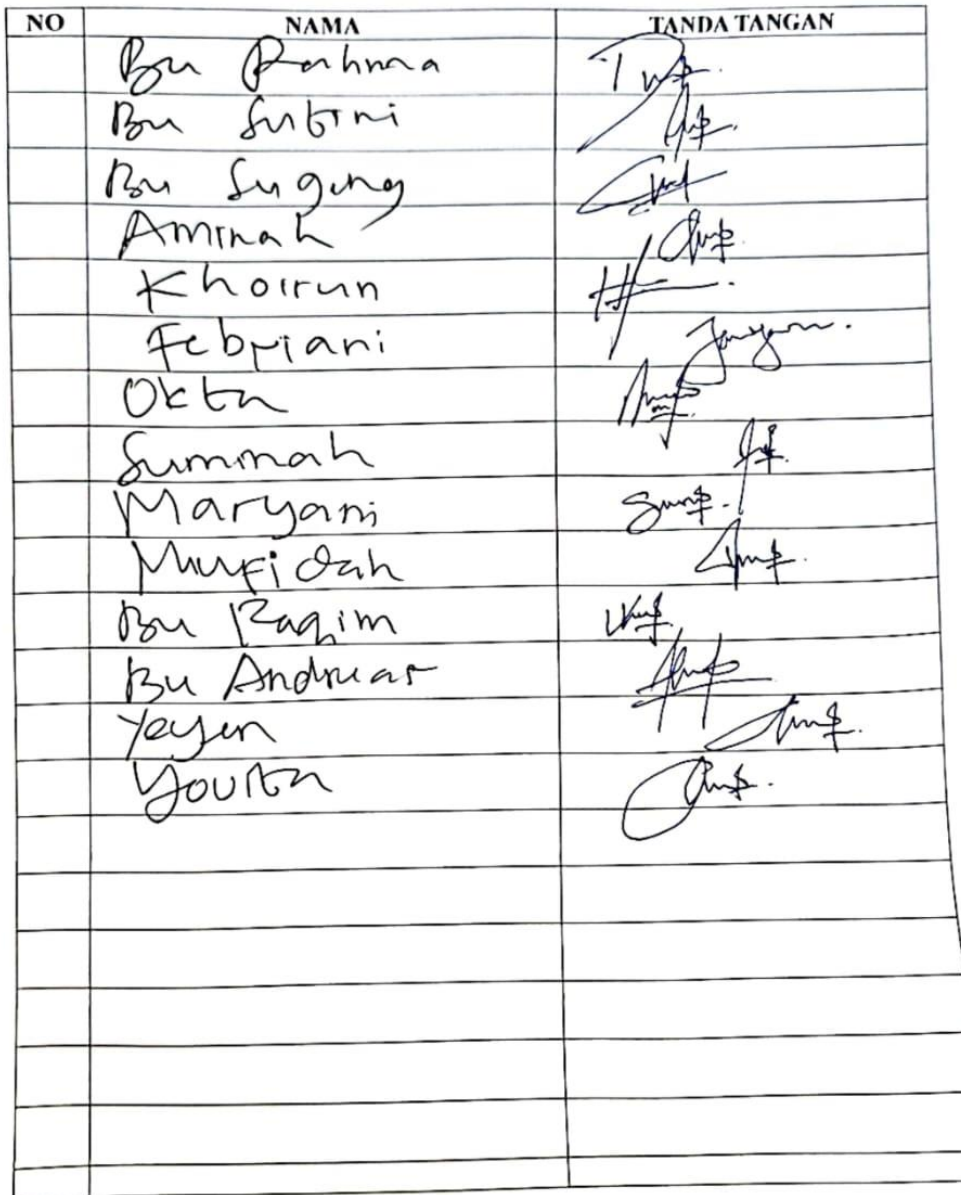 NO NAMA TANDA TANGAN
Bu Rahma
Bu Subini
Bu Sugeng
Aminah
Khoirun
Febriani
Okta
Summah
Maryani
Mufidah
Bu Paqim
Bu Andreas
Yeyen
Yourta